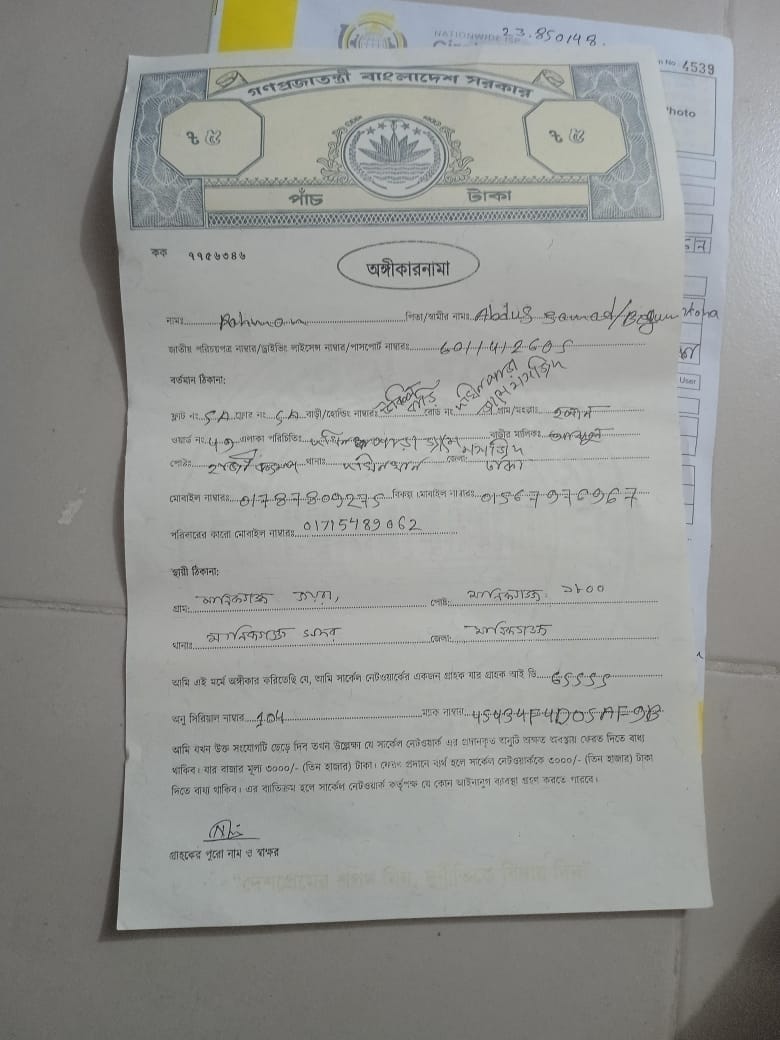 23.850148.
NATIONWIDE ISP
4539
Photo
গণপ্রজাতন্ত্রী বাংলাদেশ সরকার
৳ ৫ ৳ ৫
পাঁচ টাকা
কক ৭৭৫৬৩৪৬
অঙ্গীকারনামা
User
নামঃ Rahman পিতা/স্বামীর নামঃ Abdus Samad/Begum
জাতীয় পরিচয়পত্র নাম্বার/ড্রাইভিং লাইসেন্স নাম্বার/পাসপোর্ট নাম্বারঃ 6011412605
বর্তমান ঠিকানা:
ফ্ল্যাট নং 5A নং বাড়ী/হোল্ডিং নাম্বারঃ রোড নং গ্রাম/মহল্লাঃ
ওয়ার্ড নং এলাকা পরিচিতিঃ বাড়ীর মালিকঃ
পোষ্টঃ থানাঃ জেলা: ঢাকা
মোবাইল নাম্বারঃ 01787809275 বিকল্প মোবাইল নাম্বারঃ 01567976967
পরিবারের কারো মোবাইল নাম্বারঃ 01715489062
স্থায়ী ঠিকানা:
গ্রাম: মানিকগঞ্জ পোষ্ট: মানিকগঞ্জ ১৮০০
থানাঃ মানিকগঞ্জ সদর জেলা: মানিকগঞ্জ
আমি এই মর্মে অঙ্গীকার করিতেছি যে, আমি সার্কেল নেটওয়ার্কের একজন গ্রাহক যার গ্রাহক আই ডি 65555
অনু সিরিয়াল নাম্বার 104 ম্যাক নাম্বার 45434F4D05AF9B
আমি যখন উক্ত সংযোগটি ছেড়ে দিব তখন উল্লেক্ষ্য যে সার্কেল নেটওয়ার্ক এর প্রদানকৃত অনুটি অক্ষত অবস্থায় ফেরত দিতে বাধ্য
থাকিব। যার বাজার মূল্য ৩০০০/- (তিন হাজার) টাকা। ফেরৎ প্রদানে ব্যর্থ হলে সার্কেল নেটওয়ার্ককে ৩০০০/- (তিন হাজার) টাকা
দিতে বাধ্য থাকিব। এর ব্যতিক্রম হলে সার্কেল নেটওয়ার্ক কর্তৃপক্ষ যে কোন আইনানুগ ব্যবস্থা গ্রহণ করতে পারবে।
গ্রাহকের পুরো নাম ও স্বাক্ষর